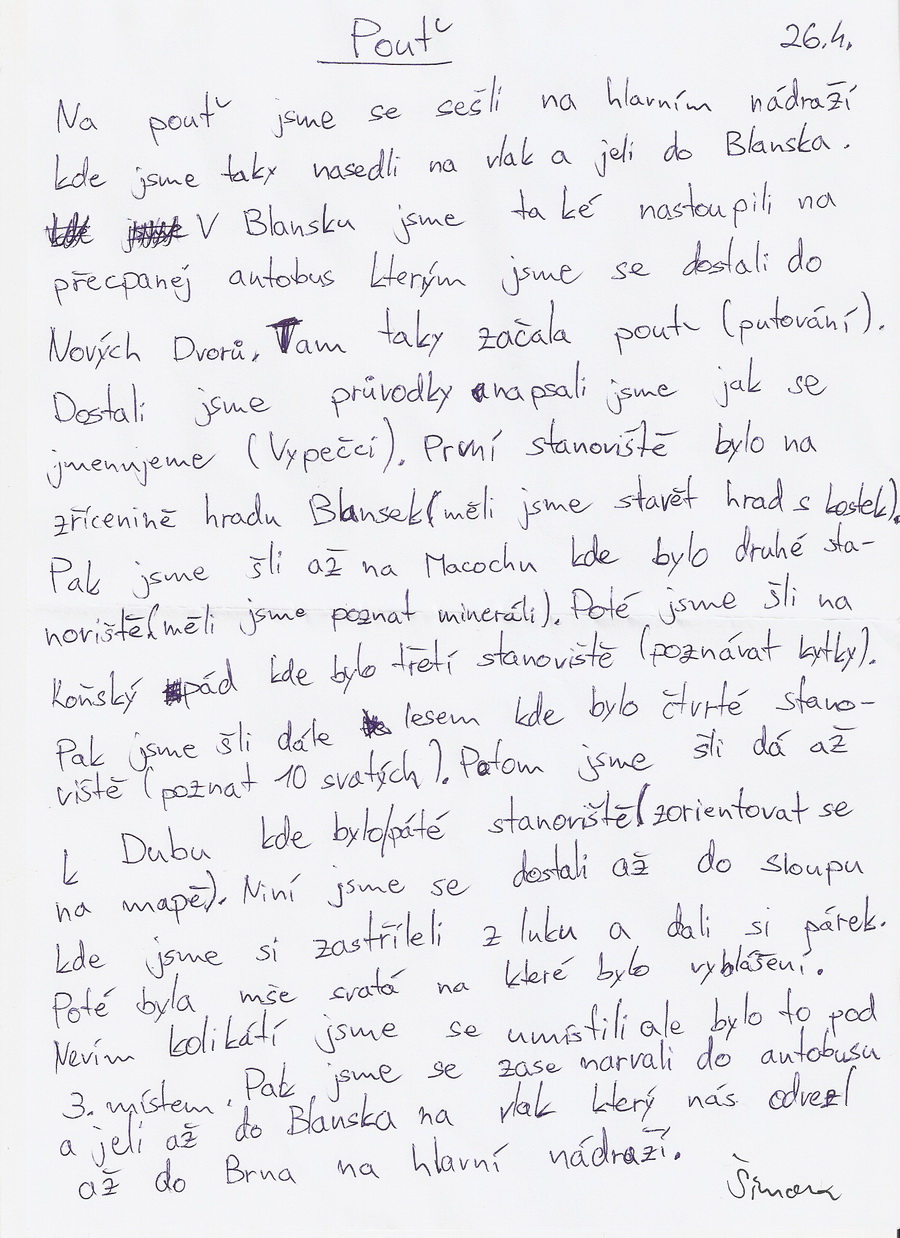 Pouť
26.4.
Na pouť jsme se sešli na hlavním nádraží
kde jsme taky nasedli na vlak a jeli do Blanska.
V Blansku jsme také nastoupili na
přecpanej autobus kterým jsme se dostali do
Nových Dvorů. Tam taky začala pouť (putování).
Dostali jsme průvodky a napsali jsme jak se
jmenujeme (Vypeččí). První stanoviště bylo na
zřícenině hradu Blansek (měli jsme stavět hrad s kostek).
Pak jsme šli až na Macochu kde bylo druhé sta-
noviště (měli jsme poznat mineráli). Poté jsme šli na
Koňský spád kde bylo třetí stanoviště (poznávat kytky).
Pak jsme šli dále lesem kde bylo čtvrté stano-
viště (poznat 10 svatých). Patom jsme šli dá až
k Dubu kde bylo páté stanoviště (zorientovat se
na mapě). Niní jsme se dostali až do sloupu
kde jsme si zastříleli z luku a dali si párek.
Poté byla mše svatá na které bylo vyhlášení.
Nevím kolikátí jsme se umístili ale bylo to pod
3. místem. Pak jsme se zase narvali do autobusu
a jeli až do Blanska na vlak který nás odvezl
až do Brna na hlavní nádraží.